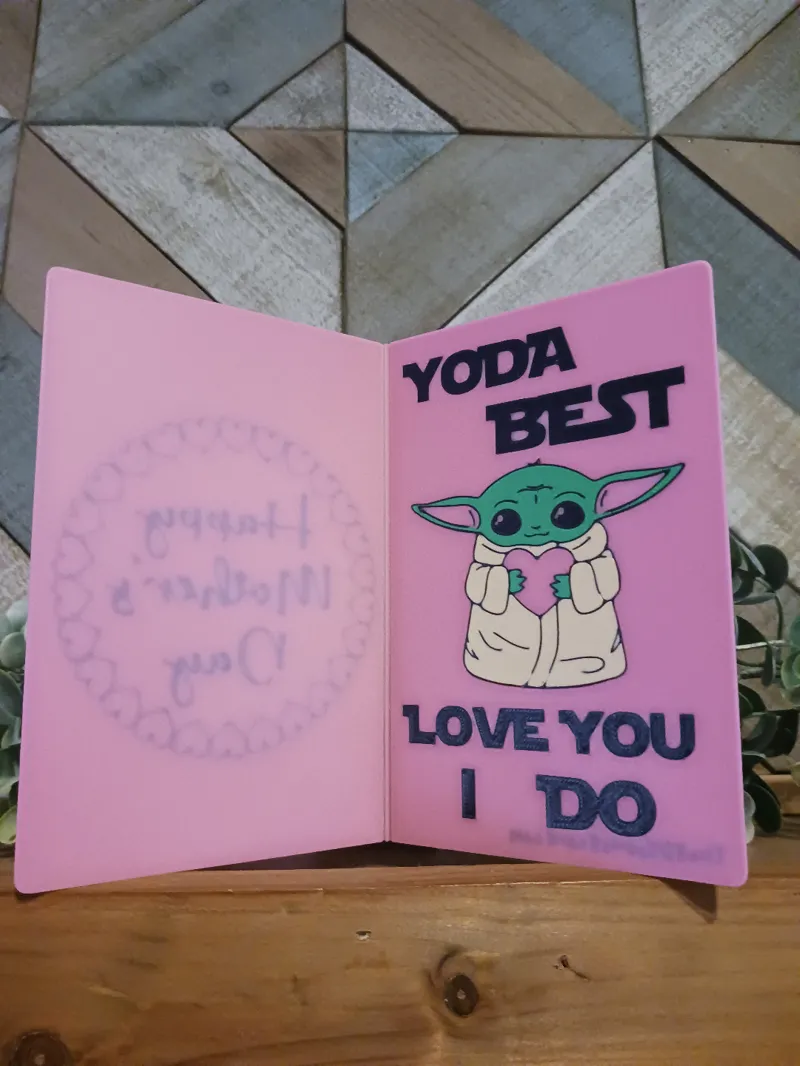 Happy
Mother's
Day
YODA
BEST
LOVE YOU
I DO